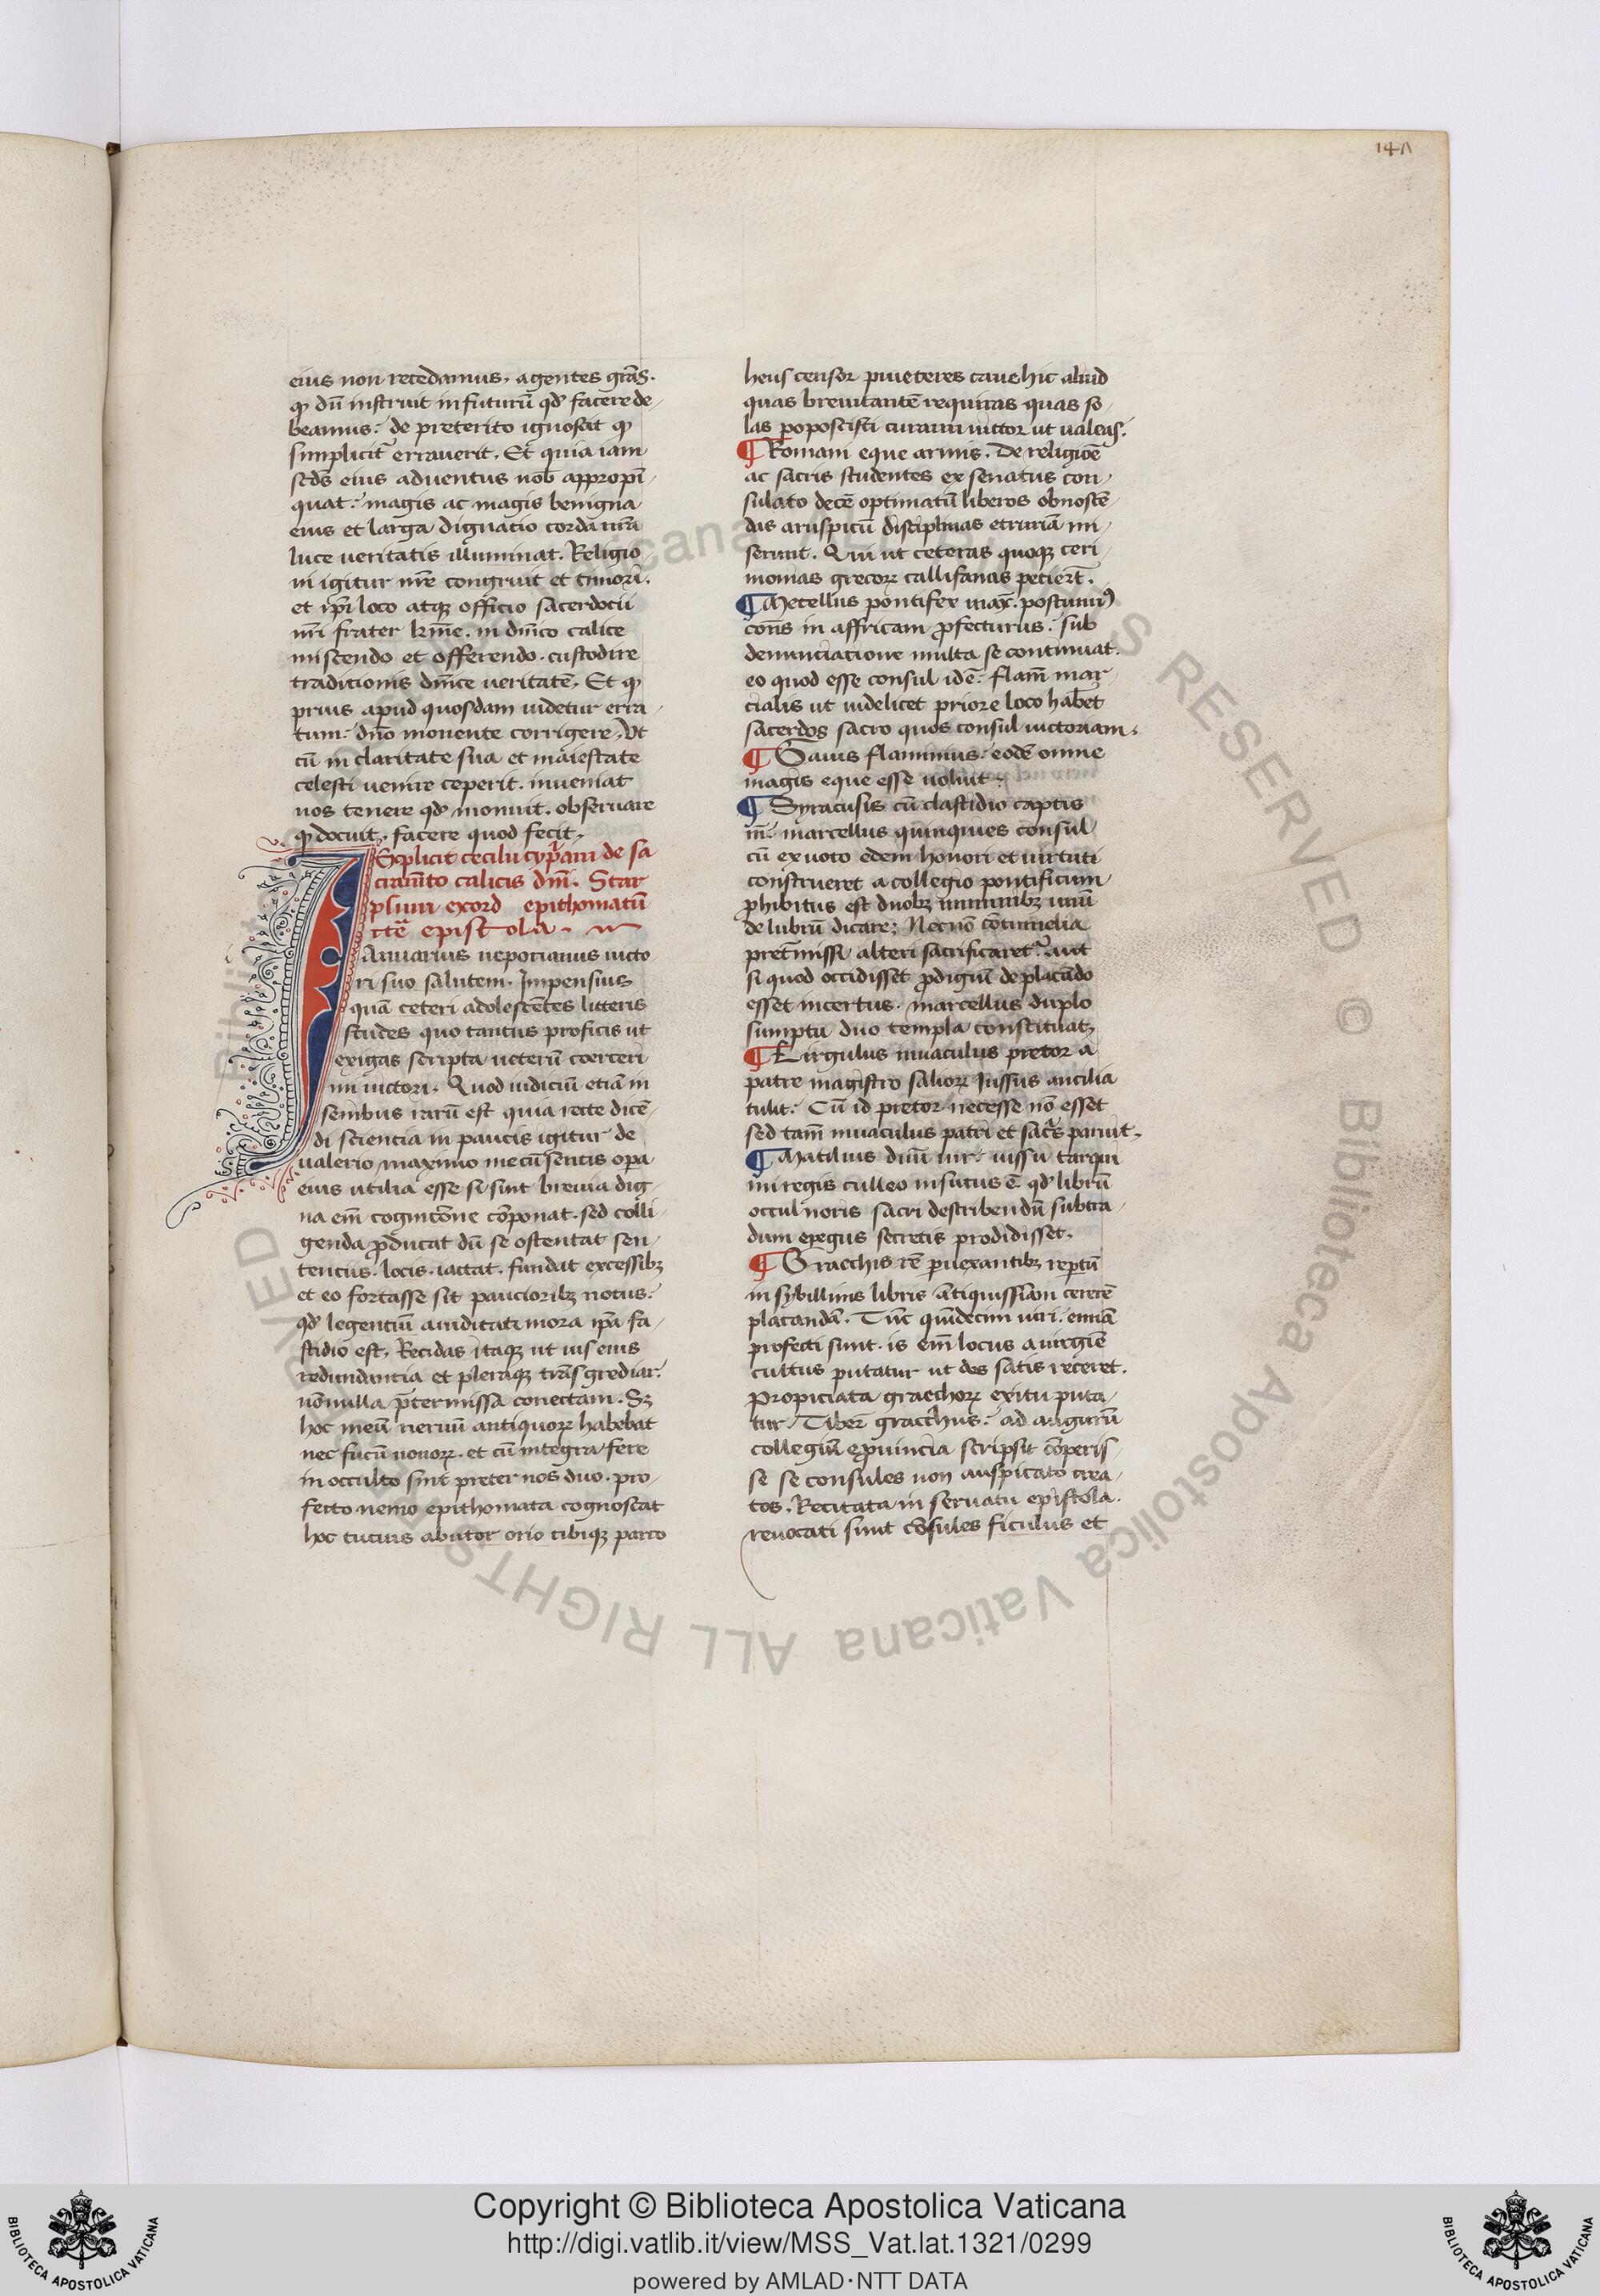 147
eius non recedamus, agentes grãs.
qꝫ dũ instruit in futurũ qđ facere de-
beamus: de preterito ignoscit qꝫ
simplicit̃ erraverit. Et quia iam
scđs eius adventus nob̃ appropi-
quat: magis ac magis benigna
eius et larga dignatio corda nr̃a
luce veritatis illuminat. Religio-
ni igitur nr̃e congruit et timori.
et ip̃i loco atqꝫ officio sacerdotii
nr̃i frater km̃e. in dñico calice
miscendo et offerendo. custodire
traditionis dñice veritatẽ. Et qꝫ
prius apud quosdam videtur erra-
tum: dño monente corrigere. Vt
cũ in claritate sua et maiestate
celesti venire ceperit. inveniat
nos tenere qđ monuit. observare
qꝫ docuit. facere quod fecit.
Explicit cecilii cypriani de sa
cram̃to calicis dñi.
epithomatũ
epistola.
Ianuarius nepotianus victo
ri suo salutem. Impensius
quã ceteri adolescẽtes litteris
studes quo tantus proficis ut
exigas scripta veterũ coerceri
mi victori. Quod iudiciũ etiã in
senibus rarũ est quia recte dicẽ-
di sciencia in paucis igitur de
valerio maximo mecũ sentis opa
eius utilia esse si sint brevia dig-
na em̃ cognicõne cõponat. sed colli-
genda ꝓducat dũ se ostentat sen-
tenciis. locis. iactat. fundit excessibꝫ
et eo fortasse sit paucioribꝫ notus:
qđ legenciũ aviditati mora ip̃a fa-
stidio est. Recidas itaqꝫ ut vis eius
redundancia et pleraqꝫ trãsgrediar.
nõnulla p̃termissa conectam. Sꝫ
hoc meũ nervũ antiquorꝝ habebat
nec fucũ novorꝝ. et cũ integra fere
in occulto sint preter nos duo. pro-
fecto nemo epithomata cognoscat
hoc tucius abutor orio tibiqꝫ parco
heus censor cave hic aliud
quas brevitantẽ requiras quas so-
las poposcisti curavi victor ut valeas.
¶ Romani eque armis. De religiõe
ac sacris studentes ex senatus con-
sulato decẽ optimatũ liberos obnoscẽ-
dis aruspicũ disciplinas etruriã mi-
serunt. Qui ut ceteras quoqꝫ ceri-
monias grecorꝝ callifanas petier̃t.
¶ Metellus pontifex max̃. postumiꝰ
cons̃ in affricam ꝓfecturus: sub
denunciatione multa se continuat.
eo quod esse consul idẽ: flam̃ mar-
cialis ut videlicet priore loco hab̃et
sacerdos sacro quos consul victoriam.
¶ Gaius flaminius: eodẽ omine
magis eque esse voluit.
¶ Syracusis cũ clastidio captis
m̃. marcellus quinquies consul
cũ ex voto edem honori et virtuti
construeret a collegio pontificum
ꝓhibitus est duobꝫ numinibꝫ unũ
delubrũ dicare: Necnõ cõtumelia
pret̃missi alteri sacrificaret̃. aut
si quod occidisset ꝓdigiũ de placãdo
esset incertus. marcellus duplo
sumptu duo templa constituat.
¶ Lirgulus invaculus pretor a
patre magistro saliorꝝ iussus ancilia
tulit: Cũ id pretor necesse nõ esset
sed tam̃ invaculus patri et sacr̃s paruit.
¶ Matilius duũ vir: iussu tarqui
ni regis culleo insutus ẽ. qđ librũ
occul noris sacri describendũ subtra-
dum exegus secretis prodidisset.
¶ Graechis rẽ p̃vexantibꝫ rep̃tũ
in sybillinis libris ãtiquissiãm cererẽ
placandã. Tũc quĩdecim viri. ennã
profecti sunt. is em̃ locus a virgiẽ
cultus putatur ut des satis receret.
Propiciata graechorꝝ exitu puta-
tur. Tiber̃ gracchus: ad augurũ
collegiũ e ꝓvincia scripsit cõperis-
se se consules non auspicato crea-
tos. Recitata in senatu epistola.
revocati sunt cõsules ficulus et
Copyright © Biblioteca Apostolica Vaticana
http://digi.vatlib.it/view/MSS_Vat.lat.1321/0299
powered by AMLAD·NTT DATA
BIBLIOTECA APOSTOLICA VATICANA
BIBLIOTECA APOSTOLICA VATICANA
© Biblioteca Apostolica Vaticana ALL RIGHTS RESERVED